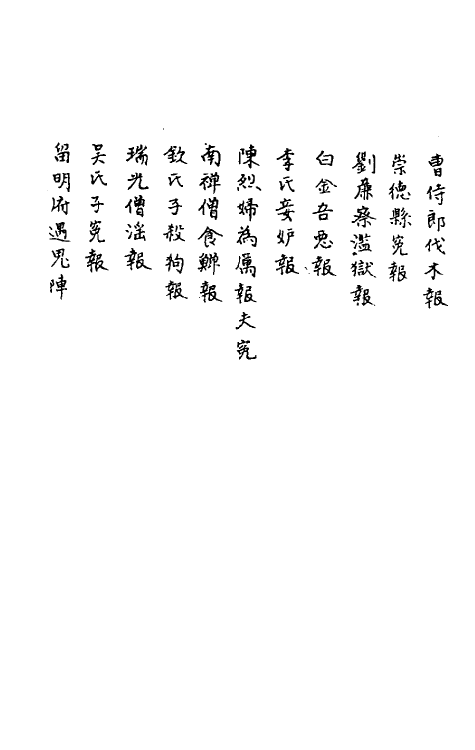 曹侍郎伐木報
崇德縣寃報
劉廉察濫獄報
白金吾惡報
李氏妾妒報
陳烈婦為厲報夫寃
南禪僧食鱓報
欽氏子殺狗報
瑞光僧淫報
吳氏子寃報
留明府遇鬼陣